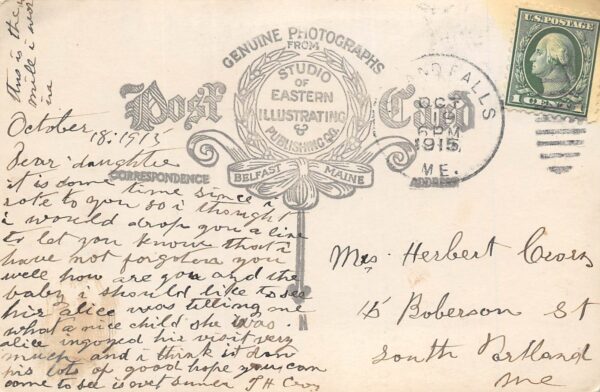 This is the
mill i wor
in
GENUINE PHOTOGRAPHS
FROM
STUDIO
OF
EASTERN
ILLUSTRATING
&
PUBLISHING CO.
BELFAST MAINE
Post Card
CORRESPONDENCE
ADDRESS
U.S. POSTAGE
1 CENT 1
AND FALLS
OCT
6 PM
1915
ME.
October 18. 1915
Dear daughter
it is some time since i
rote to you so i thought
i would drop you a line
to let you know that i
have not forgoten you
well how are you and the
baby i should like to see
her alice was telling me
what a nice child she was.
alice ingoyed his visit very
much and i think it don
his lots of good hope you can
come to see is next sumer
Mrs Herbert
15 Roberson St
South Portland
Me
N